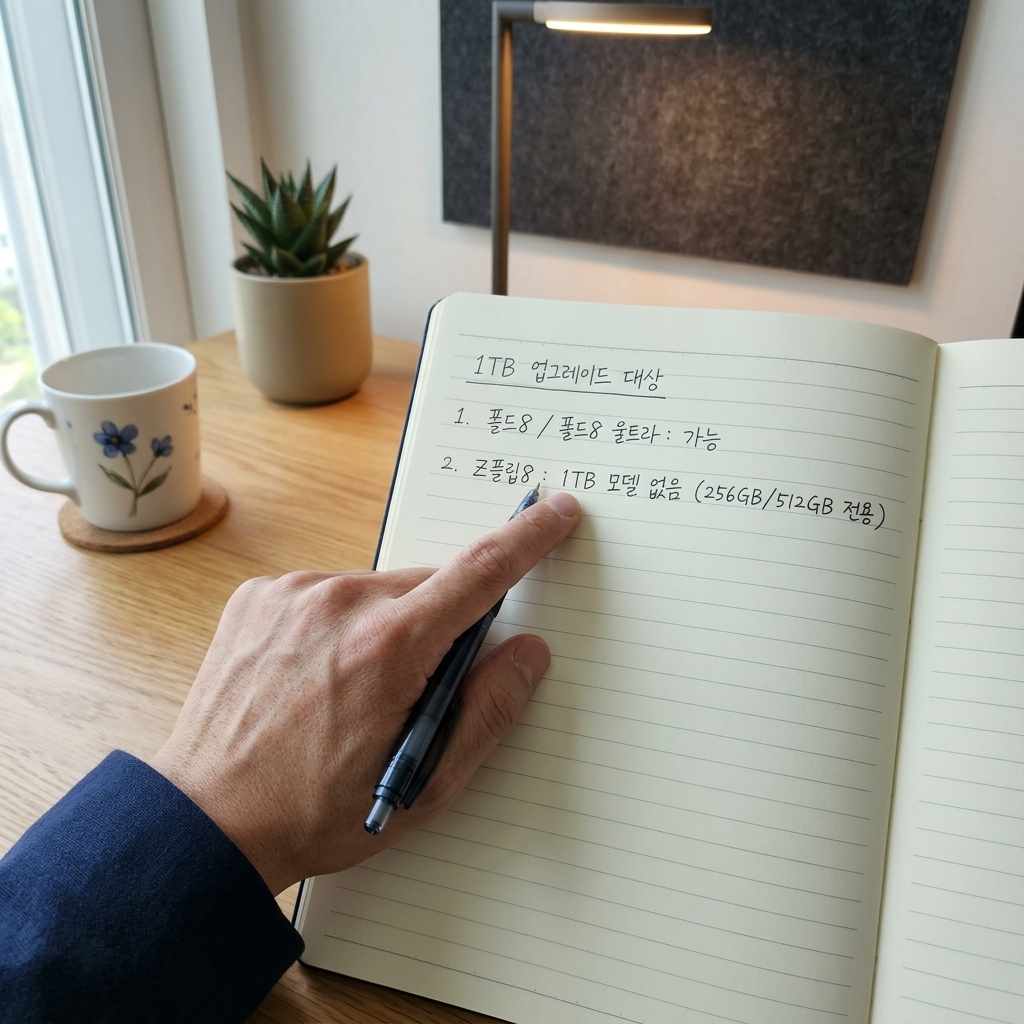 1TB 업그레이드 대상
1. 폴드8 / 폴드8 울트라 : 가능
2. Z플립8 : 1TB 모델 없음 (256GB/512GB 전용)